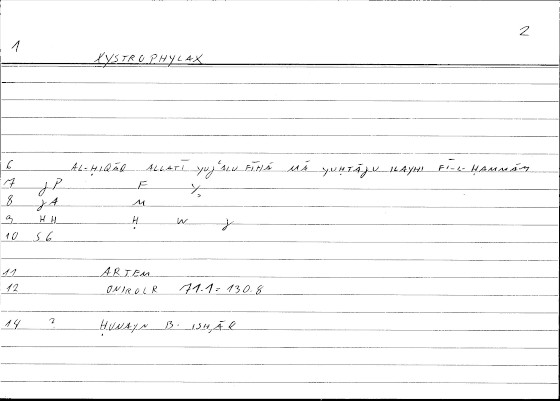 2
1 XYSTROPHYLAX
6 AL-ḤIQĀQ ALLATĪ YUJʿALU FĪHĀ MĀ YUḤTĀJU ILAYHI FĪ-L-ḤAMMĀM
7 JP F Y
8 JA M
9 HH Ḥ W J
10 S6
11 ARTEM
12 ONIROCR 71.1 = 130.8
14 ? ḤUNAYN B. ISḤĀQ